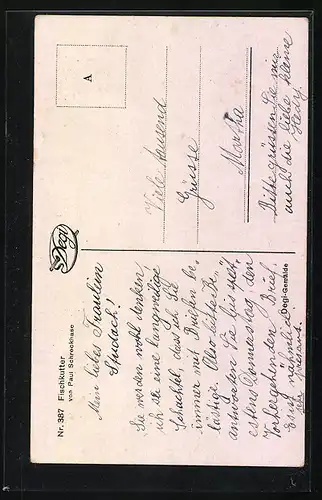 Nr. 387 Fischkutter
von Paul Schreckhase
Degi
Degi-Gemälde
A
Mein liebes Fräulein
Sudach!
Sie werden wohl denken,
ich sei eine langweilige
Schachtel, dass ich Sie
immer mit Briefen be-
lästige. Also bitte
antworten Sie bis
Donnerstag den
Vorhergehenden Brief.
Sind nähmlich
sehr pressant.
Viele tausend
Grüsse
Martha
Bitte grüssen Sie mir
auch die liebe kleine
Hedy.